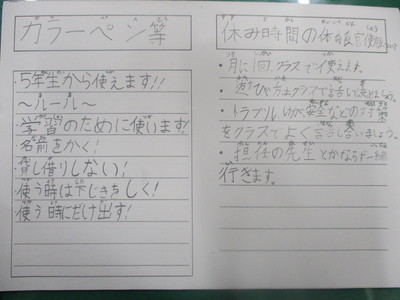 カラーペン等
・5年生から使えます!!
〜ルール〜
・学習のために使います!
・名前をかく!
・貸し借りしない!
・使う時は下じきをしく!
・使う時にだけ出す!
休み時間の体育館使用について
・月に1回クラスで使えます。
・遊び方はクラスで話し合い
・トラブル、けが、安全などの対策
をクラスでよく話し合いましょう。
・担任の先生とかならず一緒に
行きます。